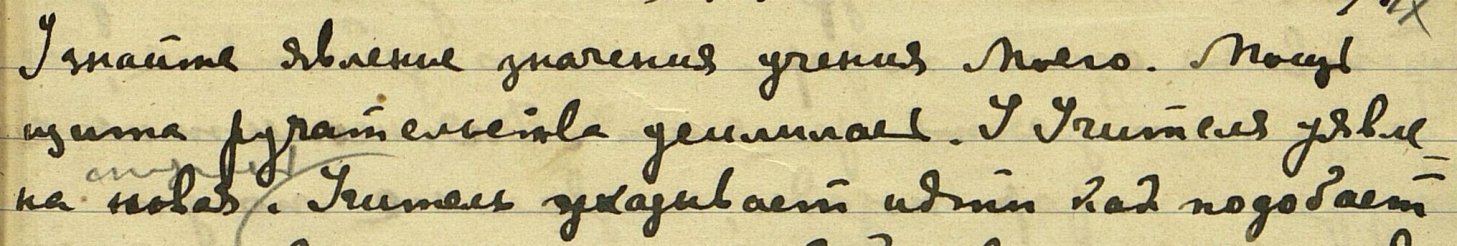 Узнайте явление значения учения Моего. Мощь
щита ручательства усилилась. У Учителя уявле-
на новая. Учитель указывает идти как подобает